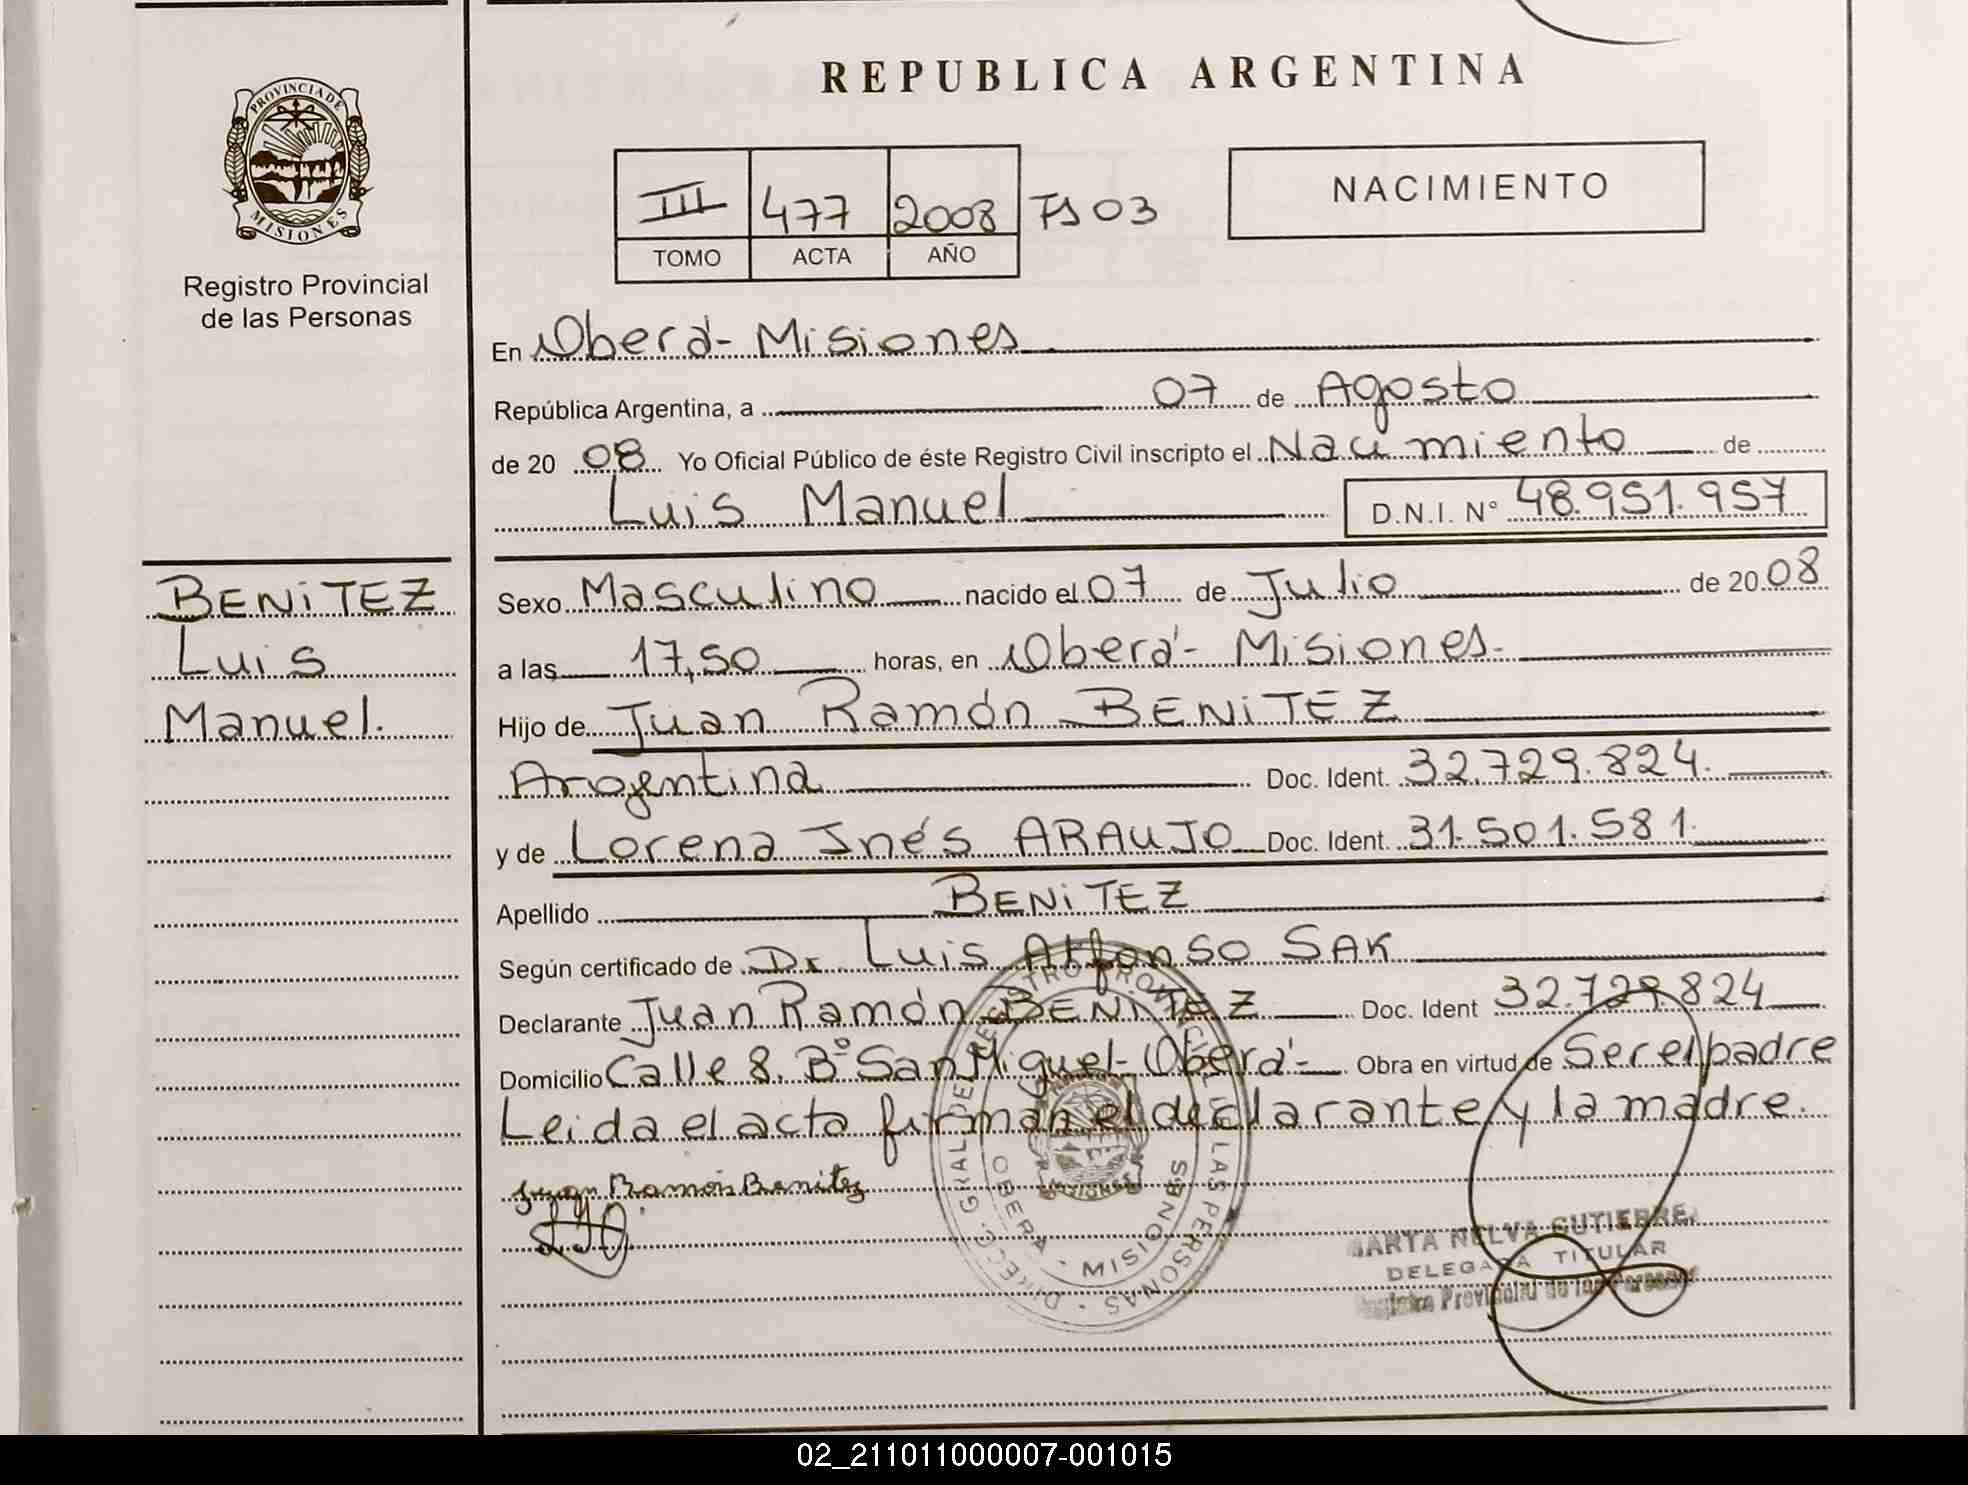 REPUBLICA ARGENTINA
PROVINCIA DE MISIONES
Registro Provincial
de las Personas
III 477 2008 Fs 03
TOMO ACTA AÑO
NACIMIENTO
En Oberá - Misiones
República Argentina, a 07 de Agosto
de 20 08 Yo Oficial Público de éste Registro Civil inscripto el Nacimiento de
Luis Manuel D.N.I. N° 48.951.957
BENITEZ
Luis
Manuel.
Sexo Masculino nacido el 07 de Julio de 20 08
a las 17,50 horas, en Oberá - Misiones.
Hijo de Juan Ramón BENITEZ
Argentina Doc. Ident. 32.729.824.
y de Lorena Inés ARAUJO Doc. Ident. 31.501.581.
Apellido BENITEZ
Según certificado de Dr Luis Alfonso SAK
Declarante Juan Ramón BENITEZ Doc. Ident 32.729.824
Domicilio Calle 8. B° San Miguel - Oberá - Obra en virtud de Ser el padre
Leida el acta firman el declarante y la madre.
Juan Ramón Benitez
DIRECC. GRAL DEL REGISTRO PROVINCIAL DE LAS PERSONAS
OBERA - MISIONES
MARTA NELVA GUTIERREZ
DELEGADA TITULAR
Registro Provincial de las Personas
02_211011000007-001015